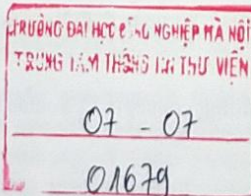 TRƯỜNG ĐẠI HỌC CÔNG NGHIỆP HÀ NỘI
TRUNG TÂM THÔNG TIN THƯ VIỆN
07 - 07
01679